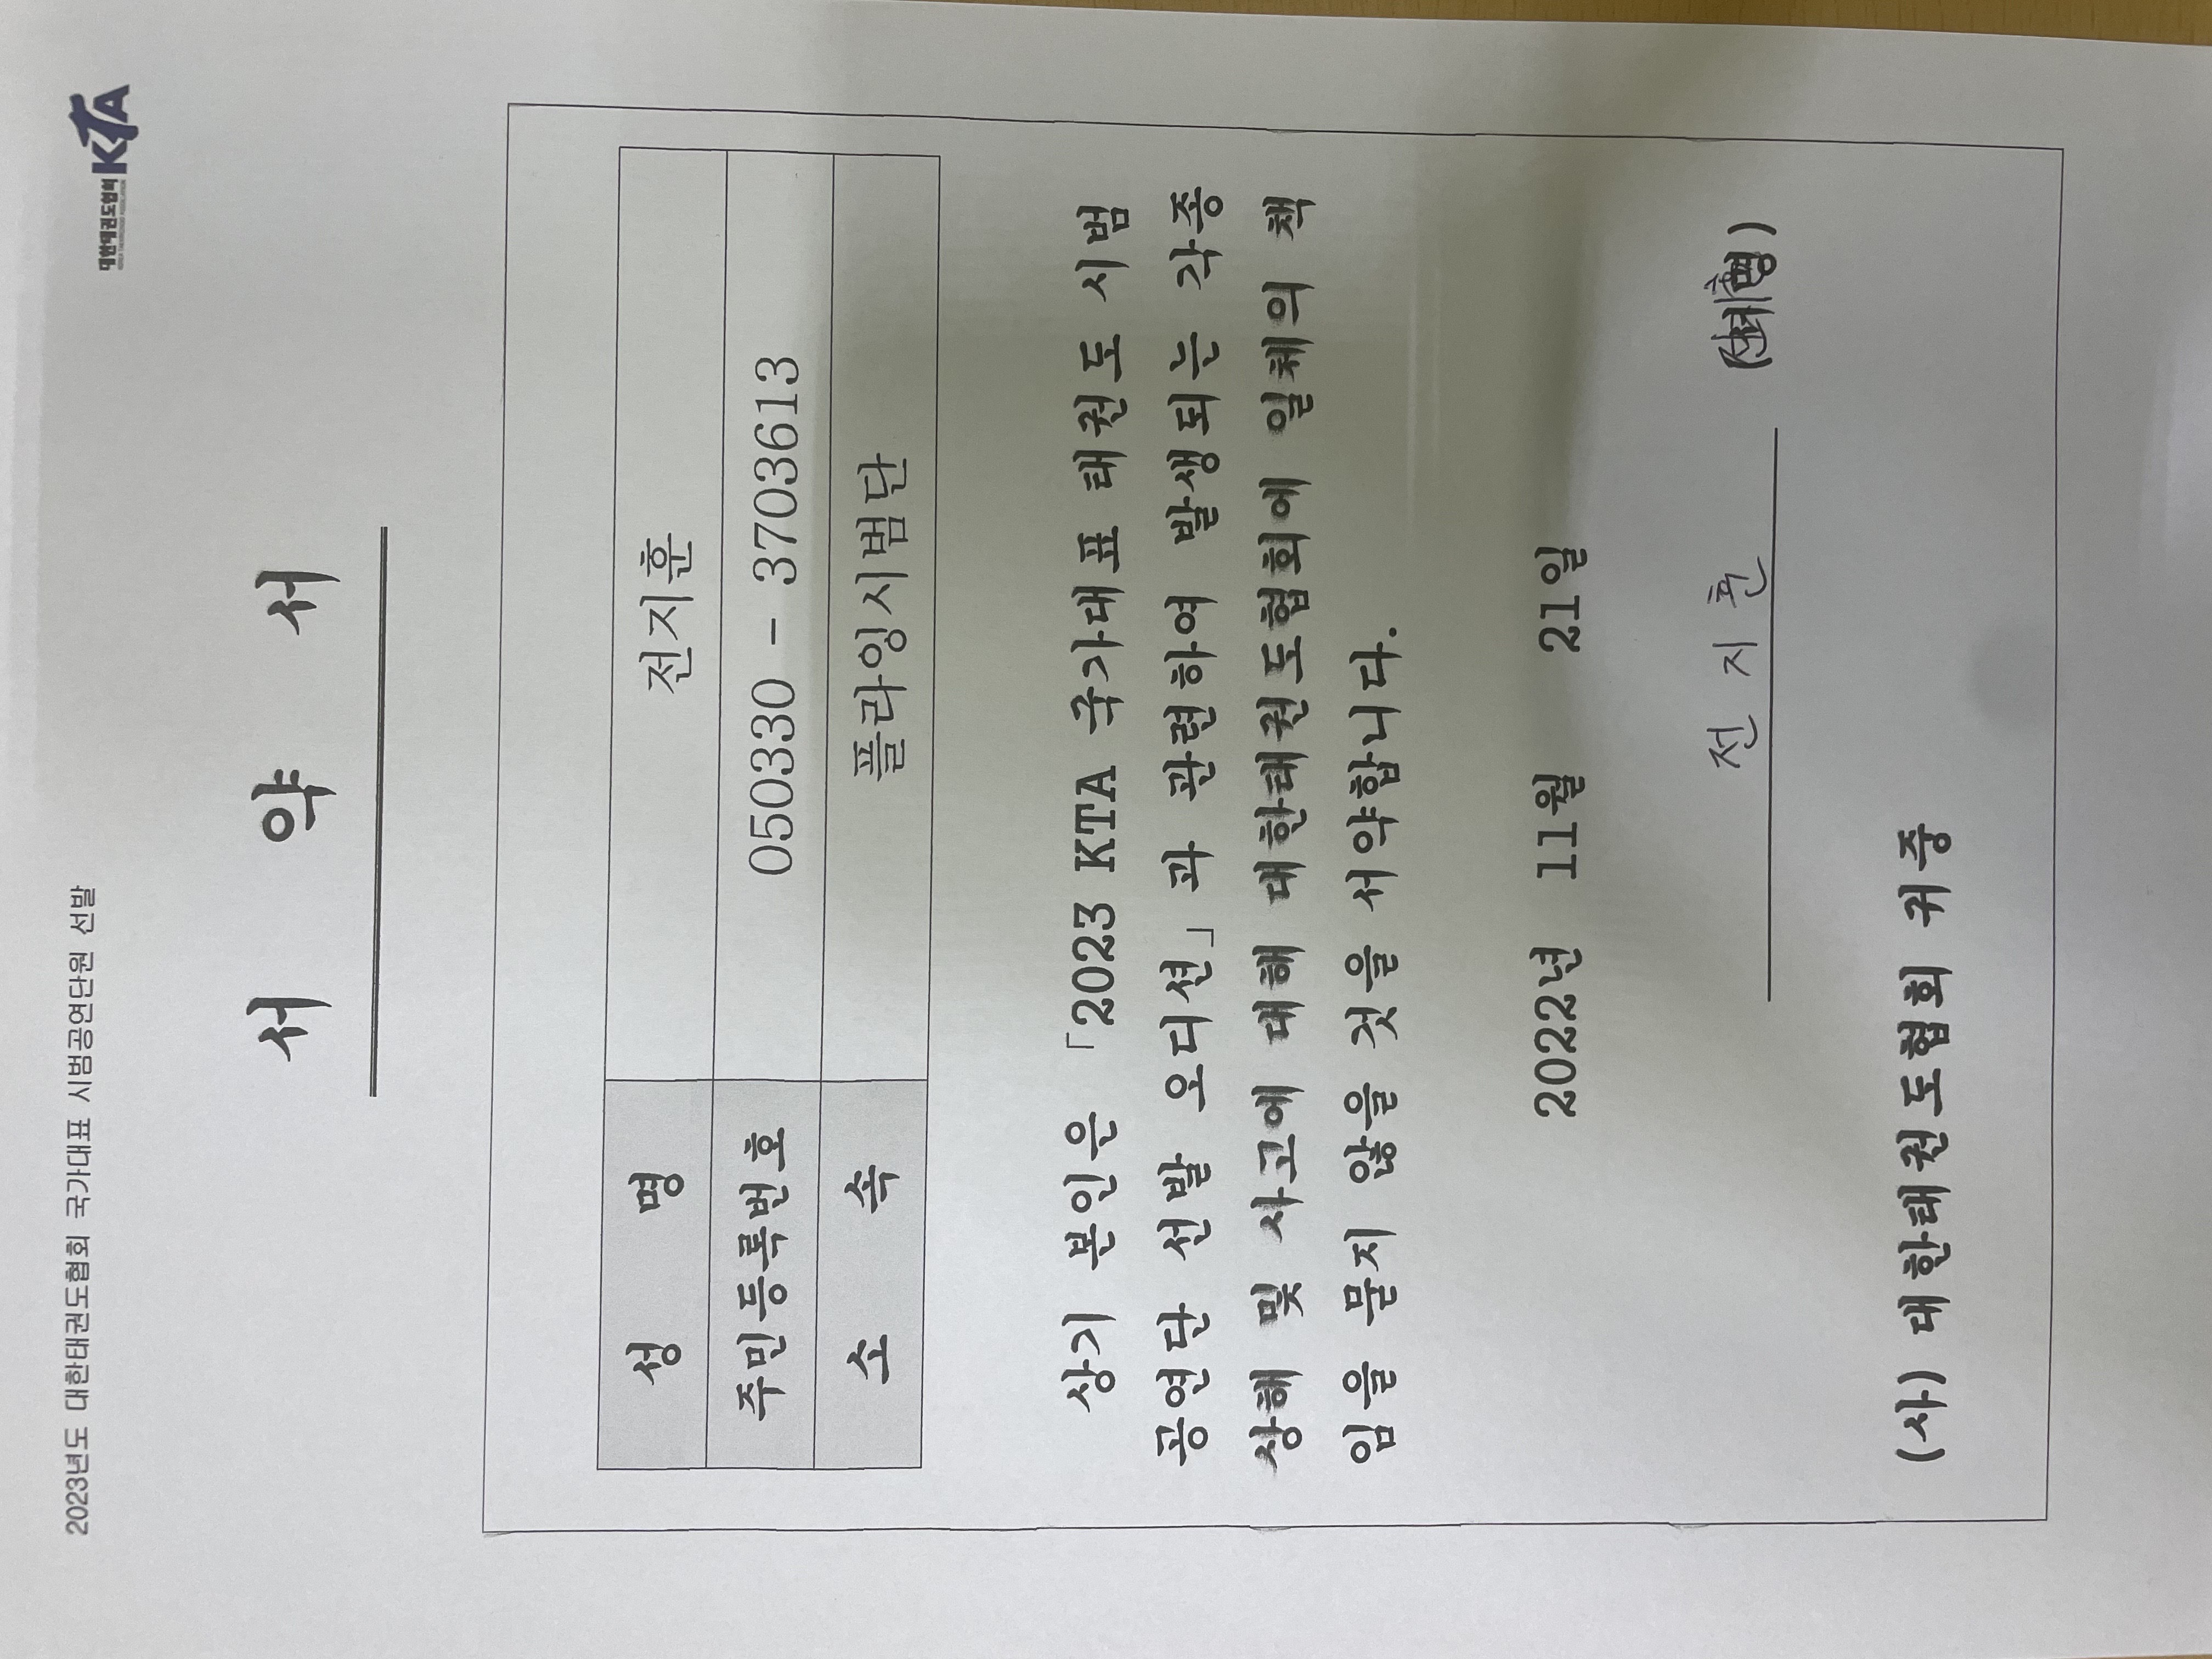 2023년도 대한태권도협회 국가대표 시범공연단원 선발
대한태권도협회 KTA
서 약 서
성 명 전지훈
주민등록번호 050330 - 3703613
소 속 플라잉시범단
상기 본인은 「2023 KTA 국가대표 태권도 시범
공연단 선발 오디션」과 관련하여 발생되는 각종
상해 및 사고에 대해 대한태권도협회에 일체의 책
임을 묻지 않을 것을 서약합니다.
2022년 11월 21일
전 지 훈
(사) 대한태권도협회 귀중